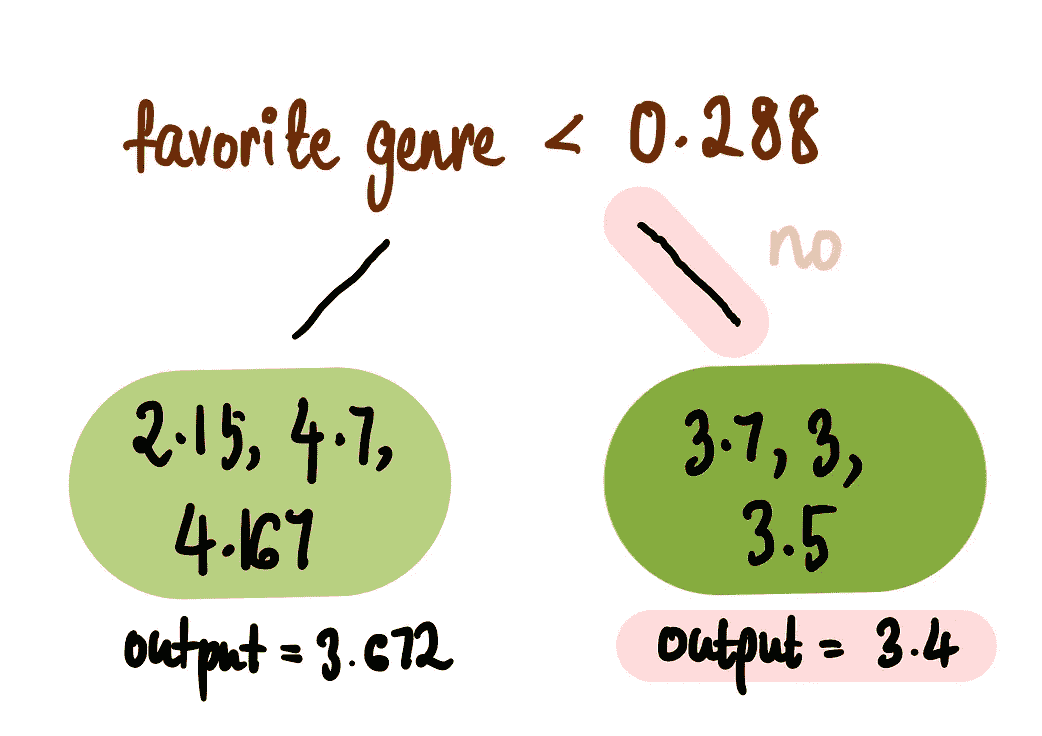 favorite genre < 0.288
no
2.15, 4.7,
4.167
3.7, 3,
3.5
output = 3.672
output = 3.4